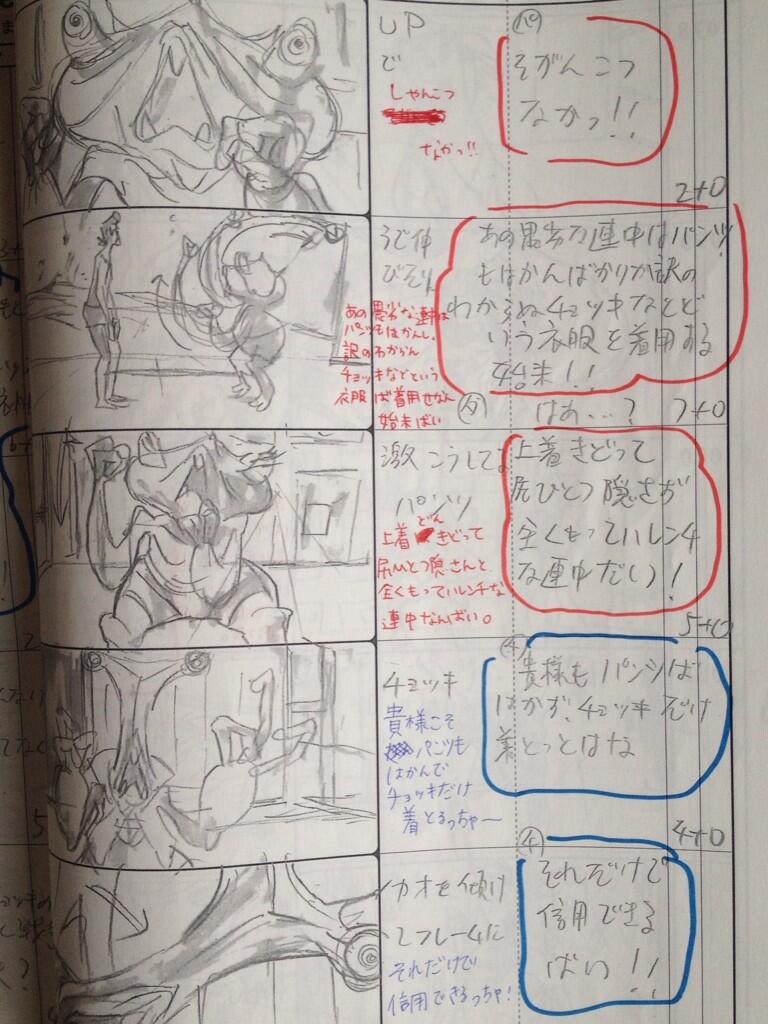 UP
で
しゃんこつ
なかっ!!
パ
そがんこつ
なかっ!!
2+0
うで伸
びそり
あの愚劣な連中は
パンツもはかんし、
訳のわからん
チョッキなどという
衣服ば着用せなん
始末ばい
あの愚劣な連中はパンツ
もはかんばかりか訳の
わからぬチョッキなどと
いう衣服を着用する
始末!!
はあ…?
7+0
激こうして
パンツ
どん
上着きどって
尻ひとつ隠さんと
全くもってハレンチな
連中なんばい。
上着きどって
尻ひとつ隠さず
全くもってハレンチ
な連中だい!
5+0
チョッキ
貴様こそ
パンツも
はかんで
チョッキだけ
着とるっちゃー
チ
貴様もパンツば
はかず、チョッキだけ
着とっとはな
4+0
カオを傾け
Lフレームに
それだけで
信用できるっちゃ!
チ
それだけで
信用できる
ばい!!